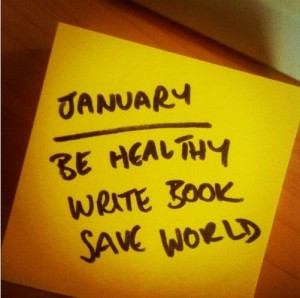 JANUARY
BE HEALTHY
WRITE BOOK
SAVE WORLD